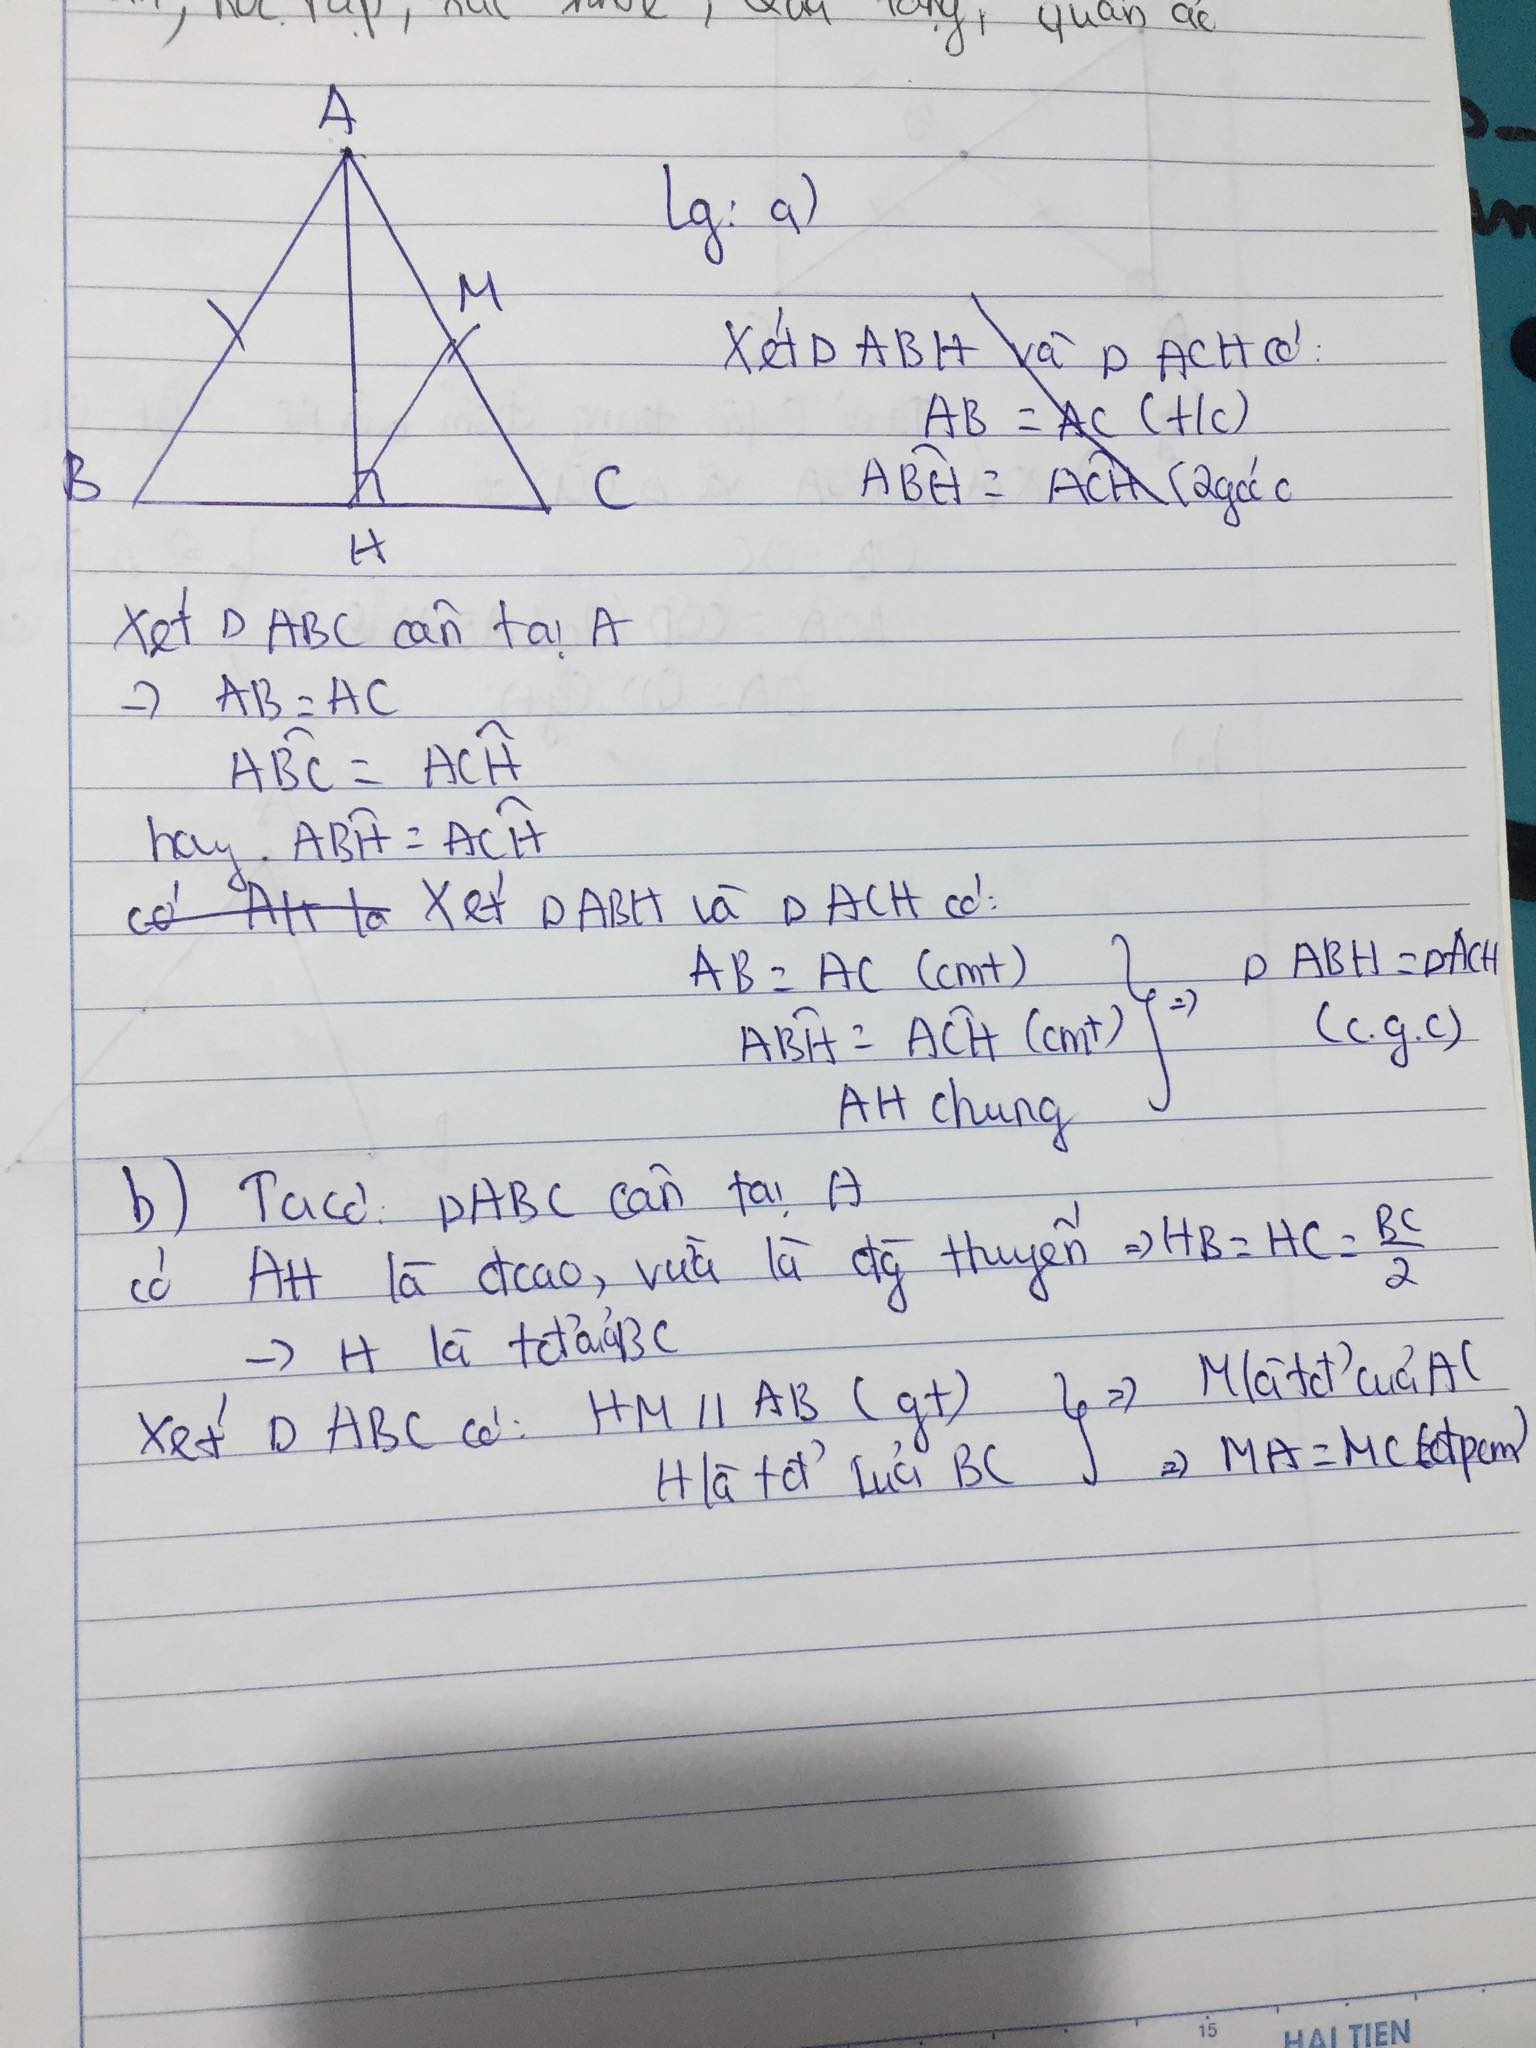 quần áo
A
Lg: a)
M
Xét D ABH và D ACH có:
AB = AC (t/c)
ABĤ = AĈH (2 góc
B
C
H
Xét D ABC cân tại A
-> AB = AC
AB̂C = ACĤ
hay ABĤ = ACĤ
có AH là Xét D ABH và D ACH có:
AB = AC (cmt)
D ABH = D ACH
ABĤ = AĈH (cmt)
=>
(c.g.c)
AH chung
b) Ta có: D ABC cân tại A
có AH là đcao, vừa là đg thuyến => HB = HC = BC/2
-> H là tđ' của BC
Xét D ABC có: HM // AB (gt) => M là tđ' của AC
H là tđ' của BC => MA = MC (đpcm)
15
HAI TIEN